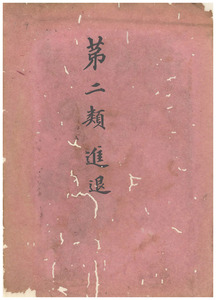 第二類進退